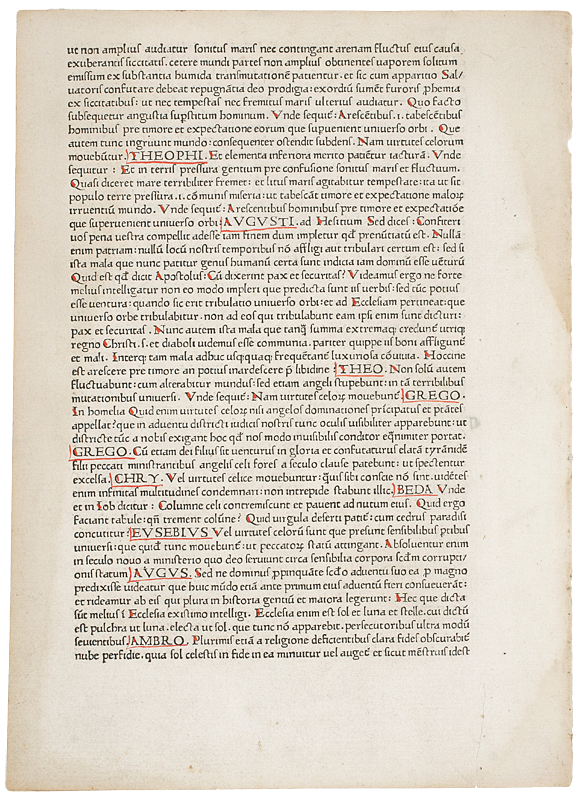 ut non amplius audiatur sonitus maris nec contingant arenam fluctus eius causa
exuberantis siccitatis. cetere mundi partes non amplius obtinentes uaporem solitum
emissum ex substantia humida transmutationē patientur. et sic cum apparitio Sal/
uatoris confutare debeat repugnātia deo prodigia: exordiū sumēt furoris ꝓhemia
ex siccitatibus: ut nec tempestas nec fremitus maris ulterius audiatur. Quo facto
subsequetur angustia supstitum hominum. Vnde sequit᷑: Arescētibus. i. tabescētibus
hominibus pre timore et expectatione eorum que supuenient uniuerso orbi. Que
autem tunc ingruunt mundo: consequenter ostendit subdens. Nam uirtutes celorum
mouebūtur. THEOPHI. Et elementa inferiora merito patiētur iacturā. Vnde
sequitur: Et in terris pressura gentium pre confusione sonitus maris et fluctuum.
Quasi diceret mare terribiliter fremet: et litus maris agitabitur tempestate: ita ut sit
populo terre pressura. i. cōmunis miseria: ut tabescāt timore et expectatione maloꝝ
irruentiū mundo. Vnde sequit᷑: Arescentibus hominibus pre timore et expectatiōe
que superuenient uniuerso orbi. AVGVSTI. ad Hesitium Sed dices: Confiteri
uos pena uestra compellit adesse iam finem dum impletur qđ prenūtiatū est. Nullā
enim patriam: nullū locū nostris temporibus nō affligi aut tribulari certum est: sed si
ista mala que nunc patitur genus humanū certa sunt indicia iam dominū esse uēturū
Quid est qđ dicit Apostolus: Cū dixerint pax et securitas? Videamus ergo ne forte
melius intelligatur non eo modo impleri que predicta sunt iis uerbis: sed tūc potius
esse uentura: quando sic erit tribulatio uniuerso orbi: et ad Ecclesiam pertineat: que
uniuerso orbe tribulabitur. non ad eos qui tribulabunt eam ipsi enim sunt dicturi:
pax et securitas. Nunc autem ista mala que tanꝗ summa extremaꝗ credunt᷑ utriꝗ
regno Christi. s. et diaboli uidemus esse communia. pariter quippe iis boni affligunt᷑
et mali. Interꝗ tam mala adhuc usquequaꝗ frequētant᷑ luxuriosa cōuiuia. Hoccine
est arescere pre timore an potius inardescere p̄ libidine? THEO. Non solū autem
fluctuabunt: cum alterabitur mundus: sed etiam angeli stupebunt: in tā terribilibus
mutationibus uniuersi. Vnde sequit᷑: Nam uirtutes celoꝝ mouebunt᷑. GREGO.
In homelia Quid enim uirtutes celoꝝ nisi angelos dominationes prīcipatus et ptātes
appellat? que in aduentu districti iudicis nostris tunc oculis uisibiliter apparebunt: ut
districte tūc a nobis exigant hoc qđ nos modo inuisibilis conditor eqnimiter portat.
GREGO. Cū etiam dei filius sit uenturus in gloria et confutaturus elatā tyrānidē
filii peccati ministrantibus angelis celi fores a seculo clause patebunt: ut spectentur
excelsa. CHRY. Vel uirtutes celice mouebuntur: quīs sibi conscie nō sint. uidētes
enim infinitas multitudines condemnari: non intrepide stabunt illic. BEDA Vnde
et in Iob dicitur: Columne celi contremiscunt et pauent ad nutum eius. Quid ergo
faciant tabule: qn̄ trement colūne? Quid uirgula deserti patit᷑: cum cedrus paradisi
concutitur? EVSEBIVS Vel uirtutes celorū sunt que presunt sensibilibus ptibus
uniuersi: que quid tunc mouebunt᷑: ut peccatoꝝ statū attingant. Absoluentur enim
in seculo nouo a ministerio quo deo seruiunt circa sensibilia corpora scđm corrupti/
onis statum AVGVS. Sed ne dominus ꝓpinquāte scđo aduentu suo ea ꝓ magno
predixisse uideatur que huic mūdo etiā ante primum eius aduentū fieri consueuerāt:
et rideamur ab eis qui plura in historia gentiū et maiora legerunt: Hec que dicta
sūt melius ī Ecclesia existimo intelligi. Ecclesia enim est sol et luna et stelle. cui dictū
est pulchra ut luna. electa ut sol. que tunc nō apparebit. persecutoribus ultra modū
seuientibus. AMBRO. Plurimis etiā a religione deficientibus clara fides obscurabit᷑
nube perfidie. quia sol celestis in fide in ea minuitur uel auget᷑ et sicut mēstruis idest